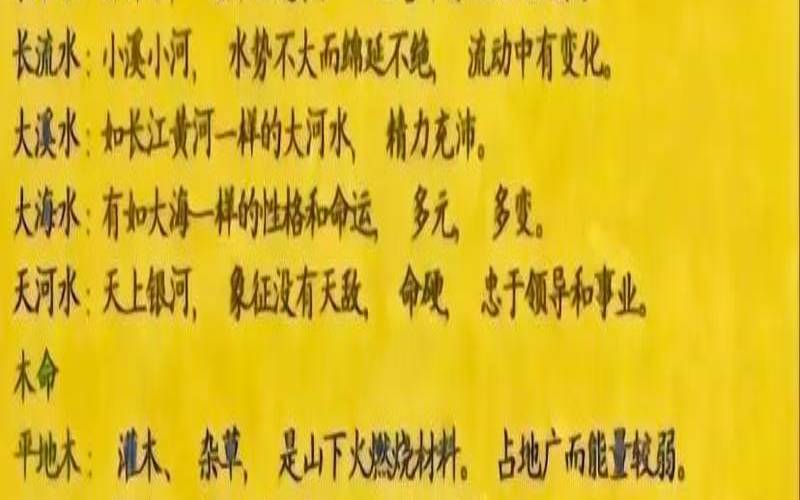 长流水：小溪小河，水势不大而绵延不绝，流动中有变化。
大溪水：如长江黄河一样的大河水，精力充沛。
大海水：有如大海一样的性格和命运，多元，多变。
天河水：天上银河，象征没有天敌，命硬，忠于领导和事业。
木命
平地木：灌木、杂草，是山下火燃烧材料。占地广而能量较弱。